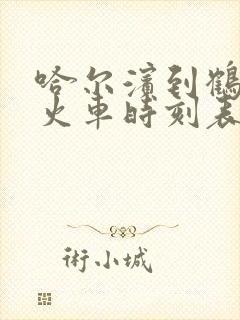 哈尔滨到鹤
火车时刻表
術小城